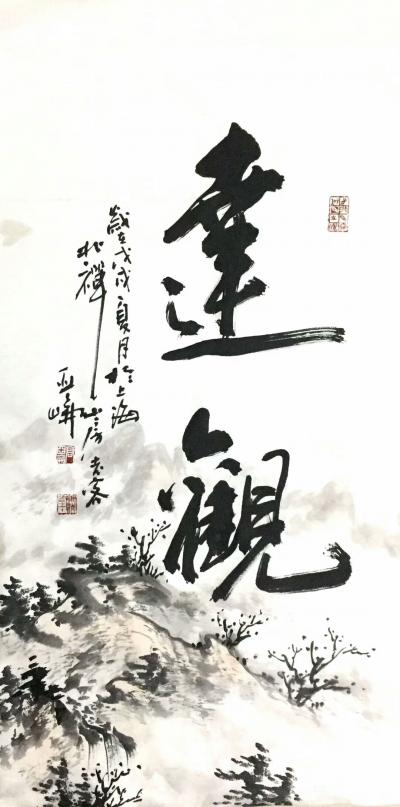 達觀
歲在戊戌夏月於上海
北禪山房主客
亚峰